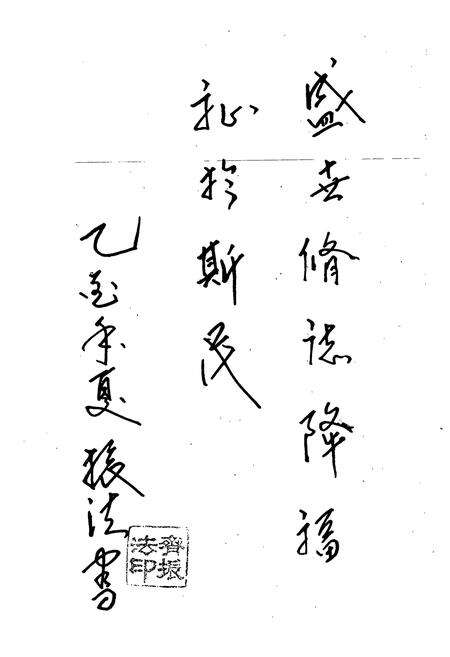 盛世脩誌降福
祉於斯民
乙亥年夏振法書
齊振法印